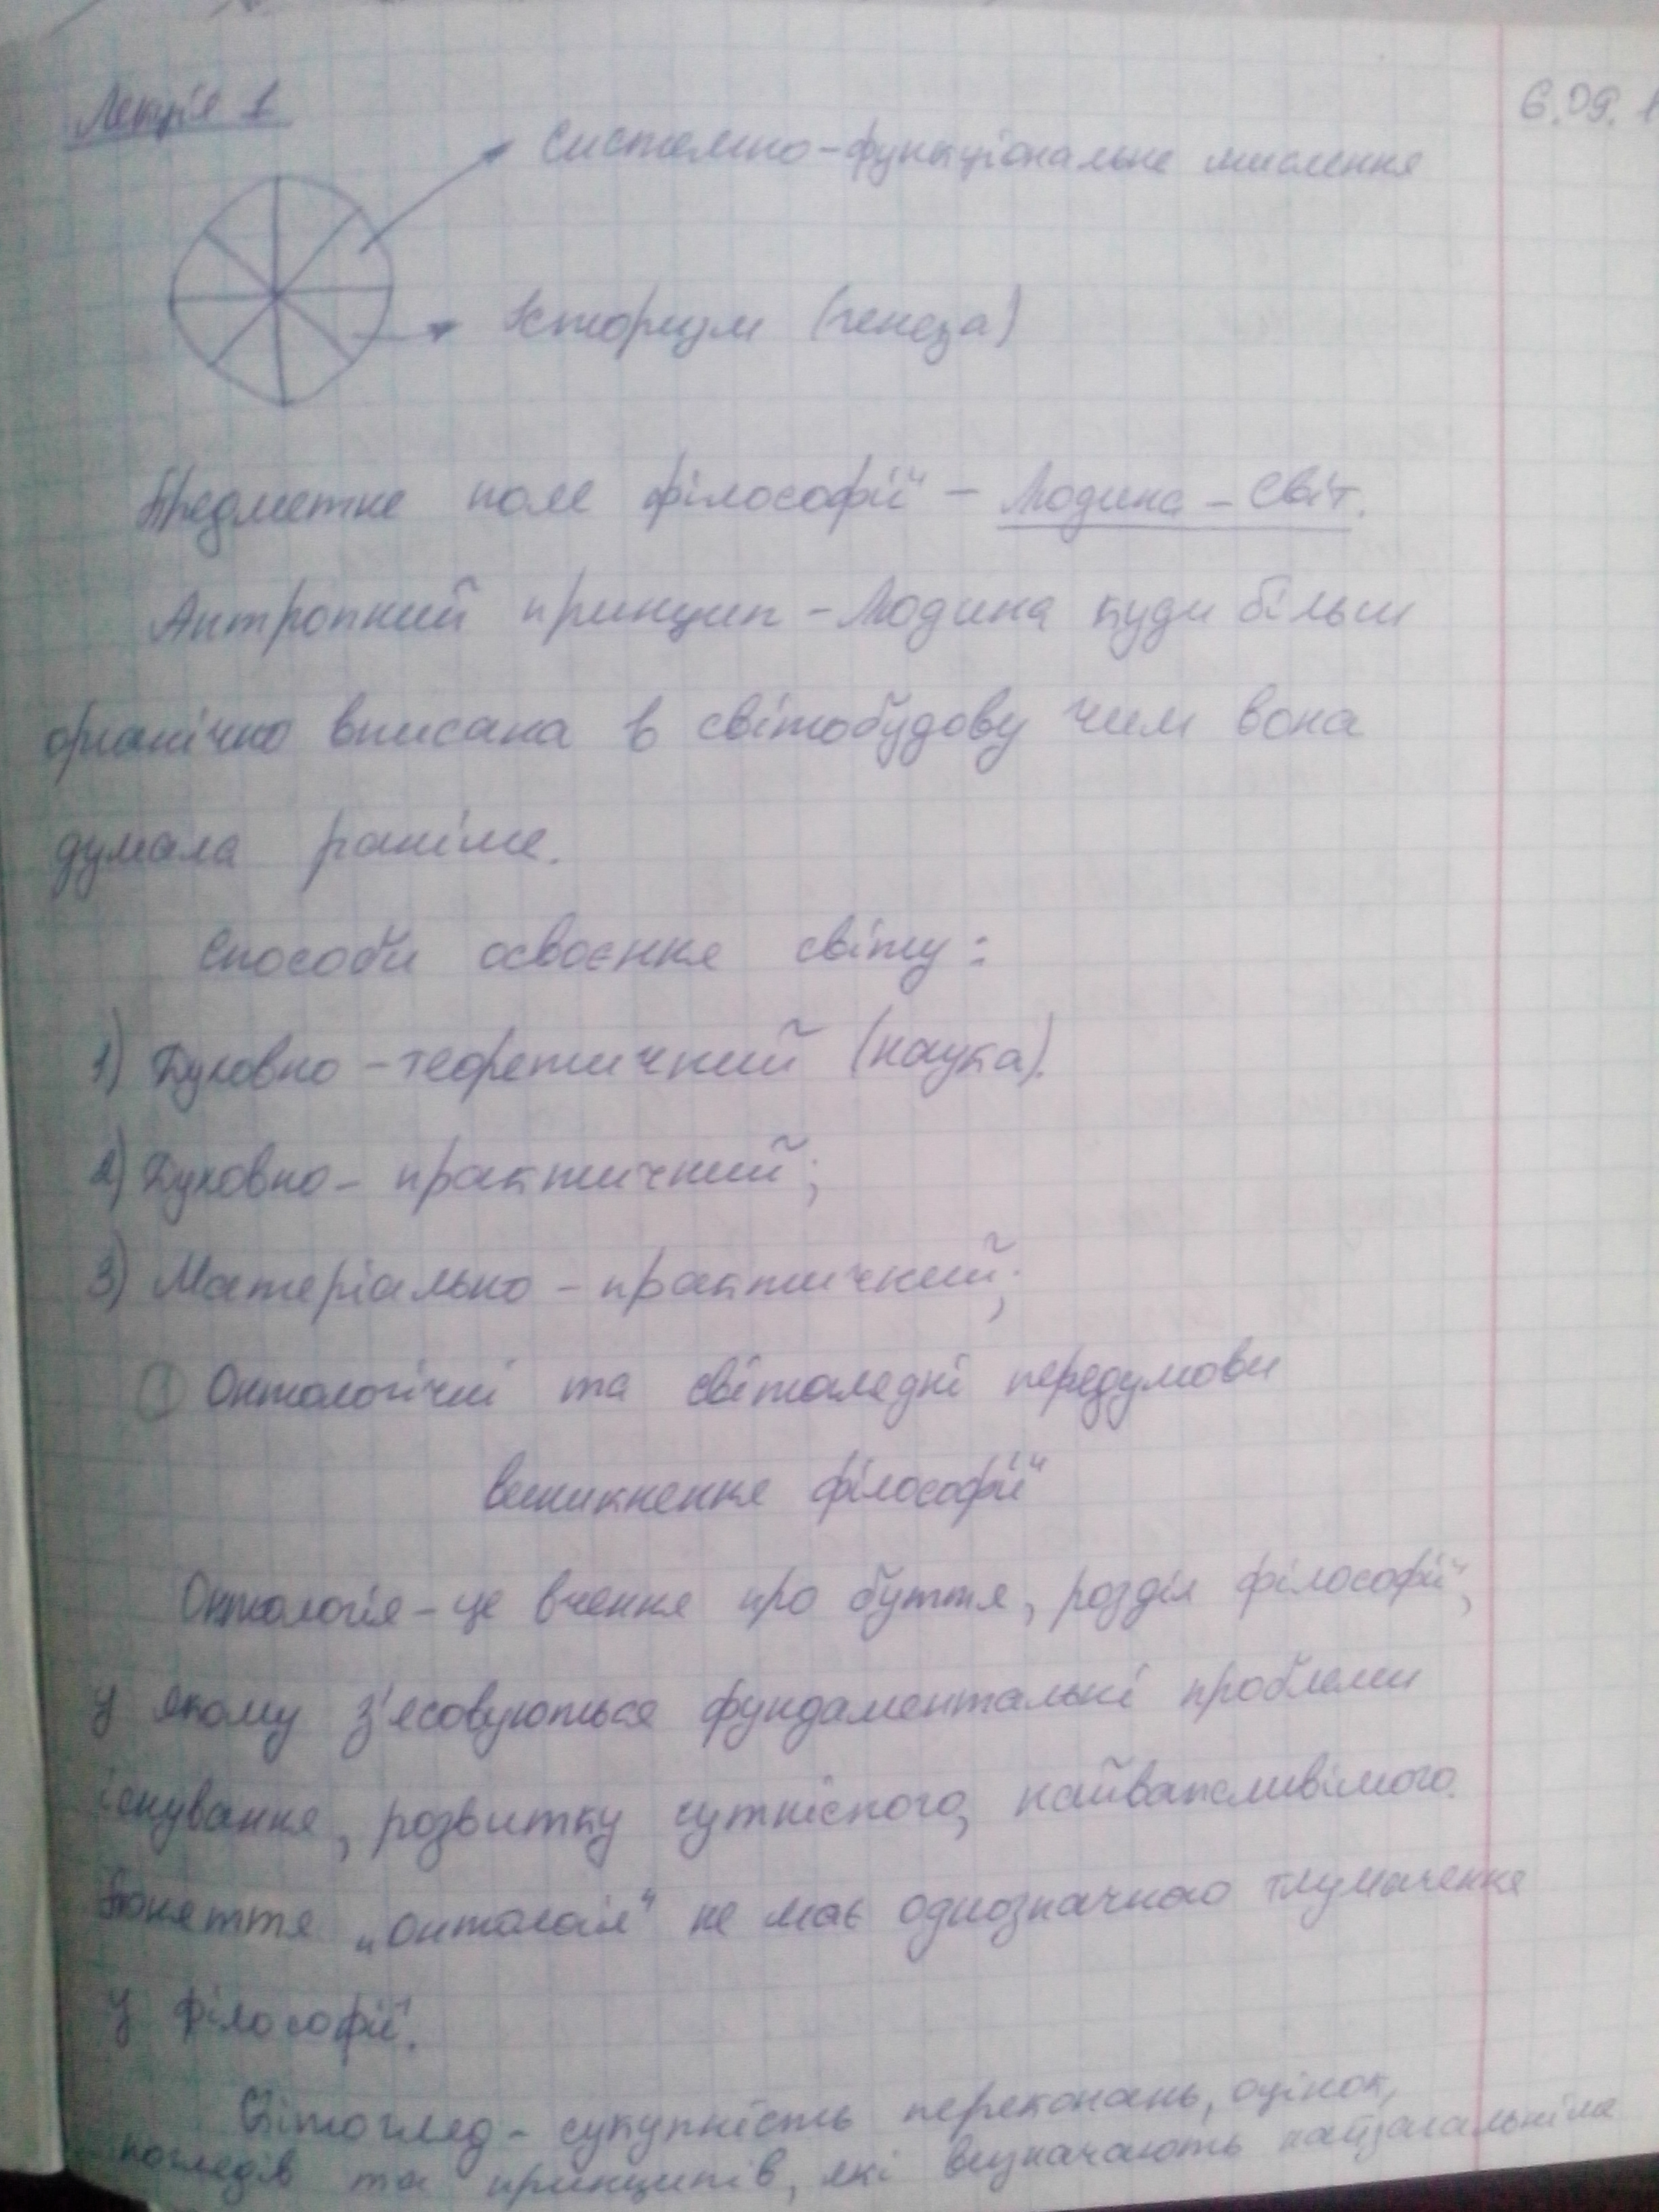 Лекція 1
6.09.1
Системно-функціональне мислення
Історизм (генеза)
Предметне поле філософії – Людина – Світ.
Антропний принцип – Людина куди більш
органічно вписана в світобудову чим вона
думала раніше.
Способи освоєння світу:
1) Духовно – теоретичний (наука).
2) Духовно – практичний;
3) Матеріально – практичний;
① Онтологічні та світоглядні передумови
виникнення філософії
Онтологія – це вчення про буття, розділ філософії,
у якому з'ясовуються фундаментальні проблеми
існування, розвитку найважливішого.
Поняття „онтологія“ не має однозначного тлумачення
у філософії.
Світогляд – сукупність переконань, оцінок,
поглядів та принципів, які визначають найзагальніше